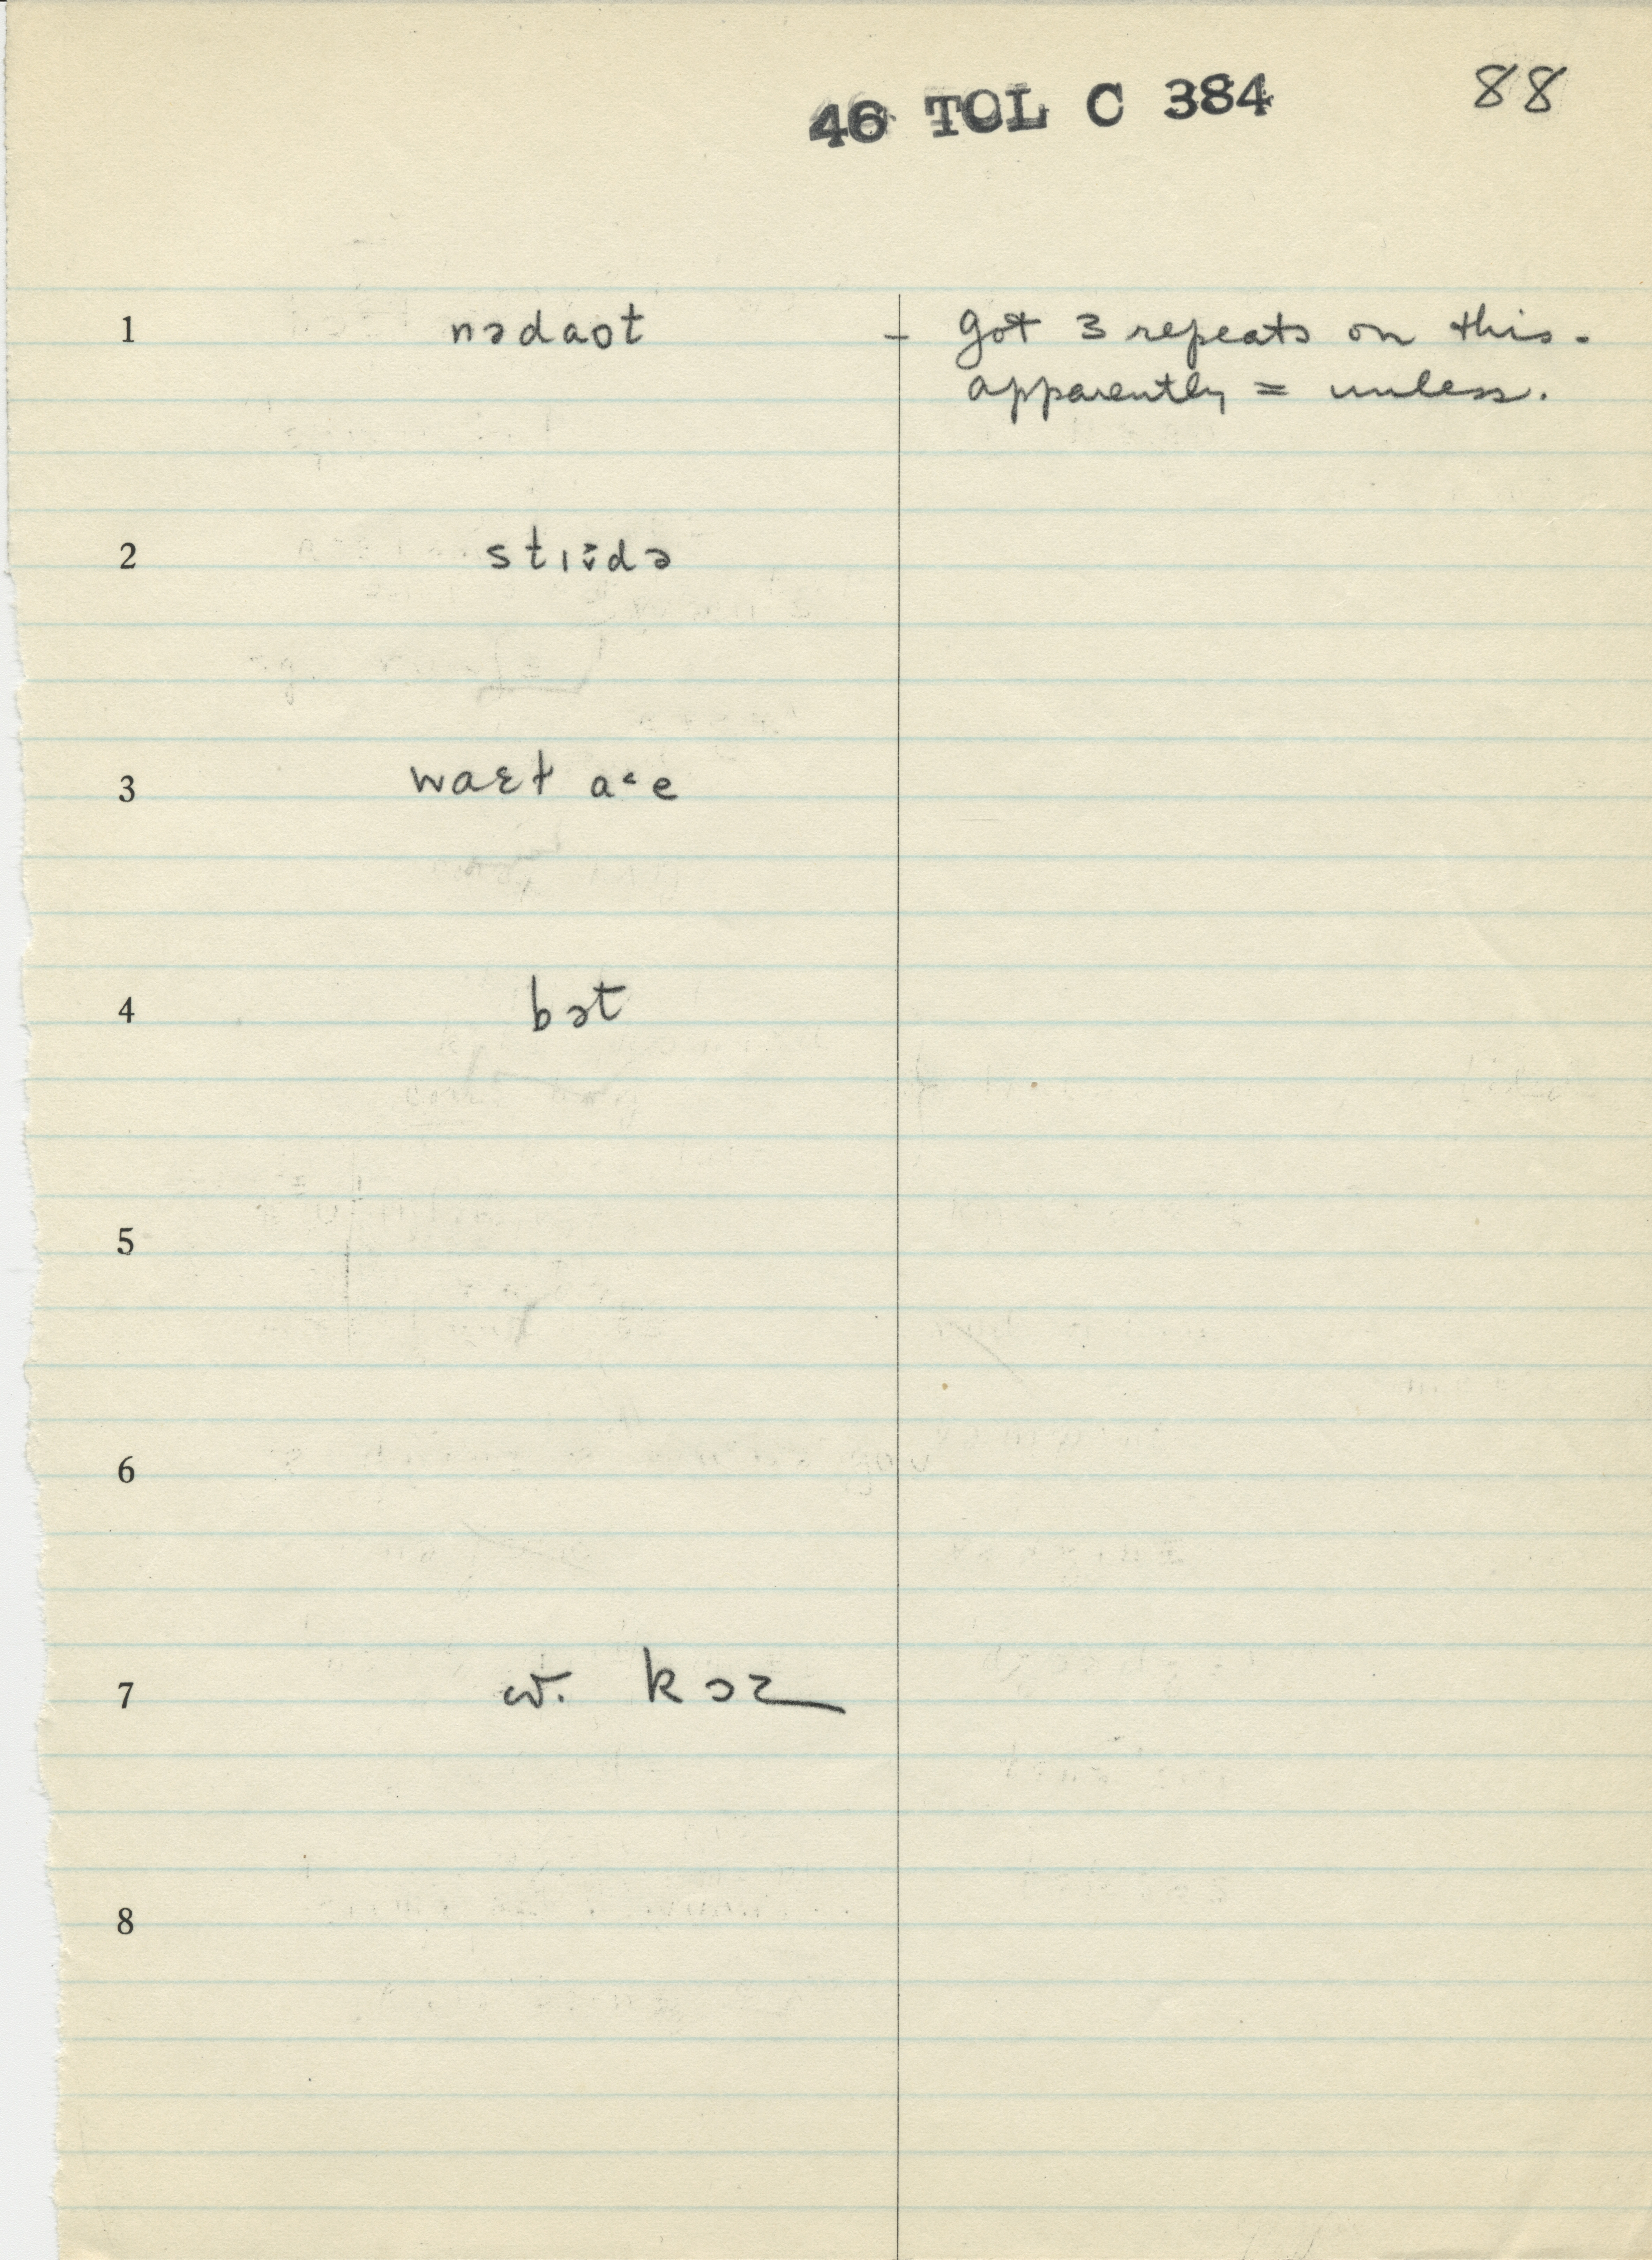 46 TOL C 384 88
1 nədaot – got 3 repeats on this.
apparently = unless.
2
3 waɛt
4 bət
5
6
7
8